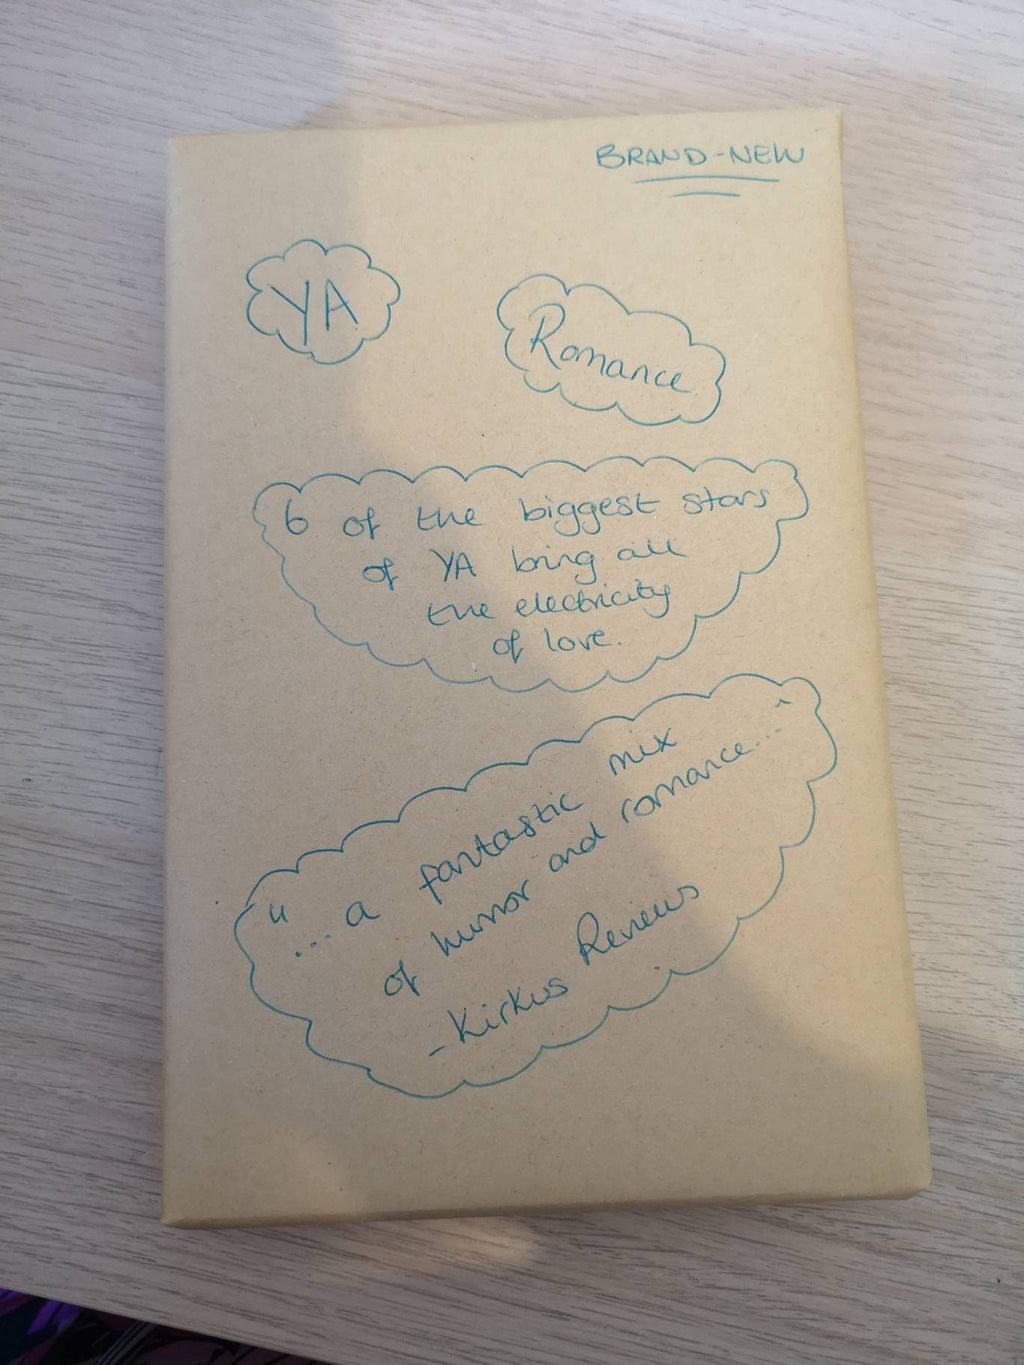 BRAND-NEW
YA
Romance
6 of the biggest stars
of YA bring all
the electricity
of love.
"...a fantastic mix
of humor and romance..."
- Kirkus Reviews